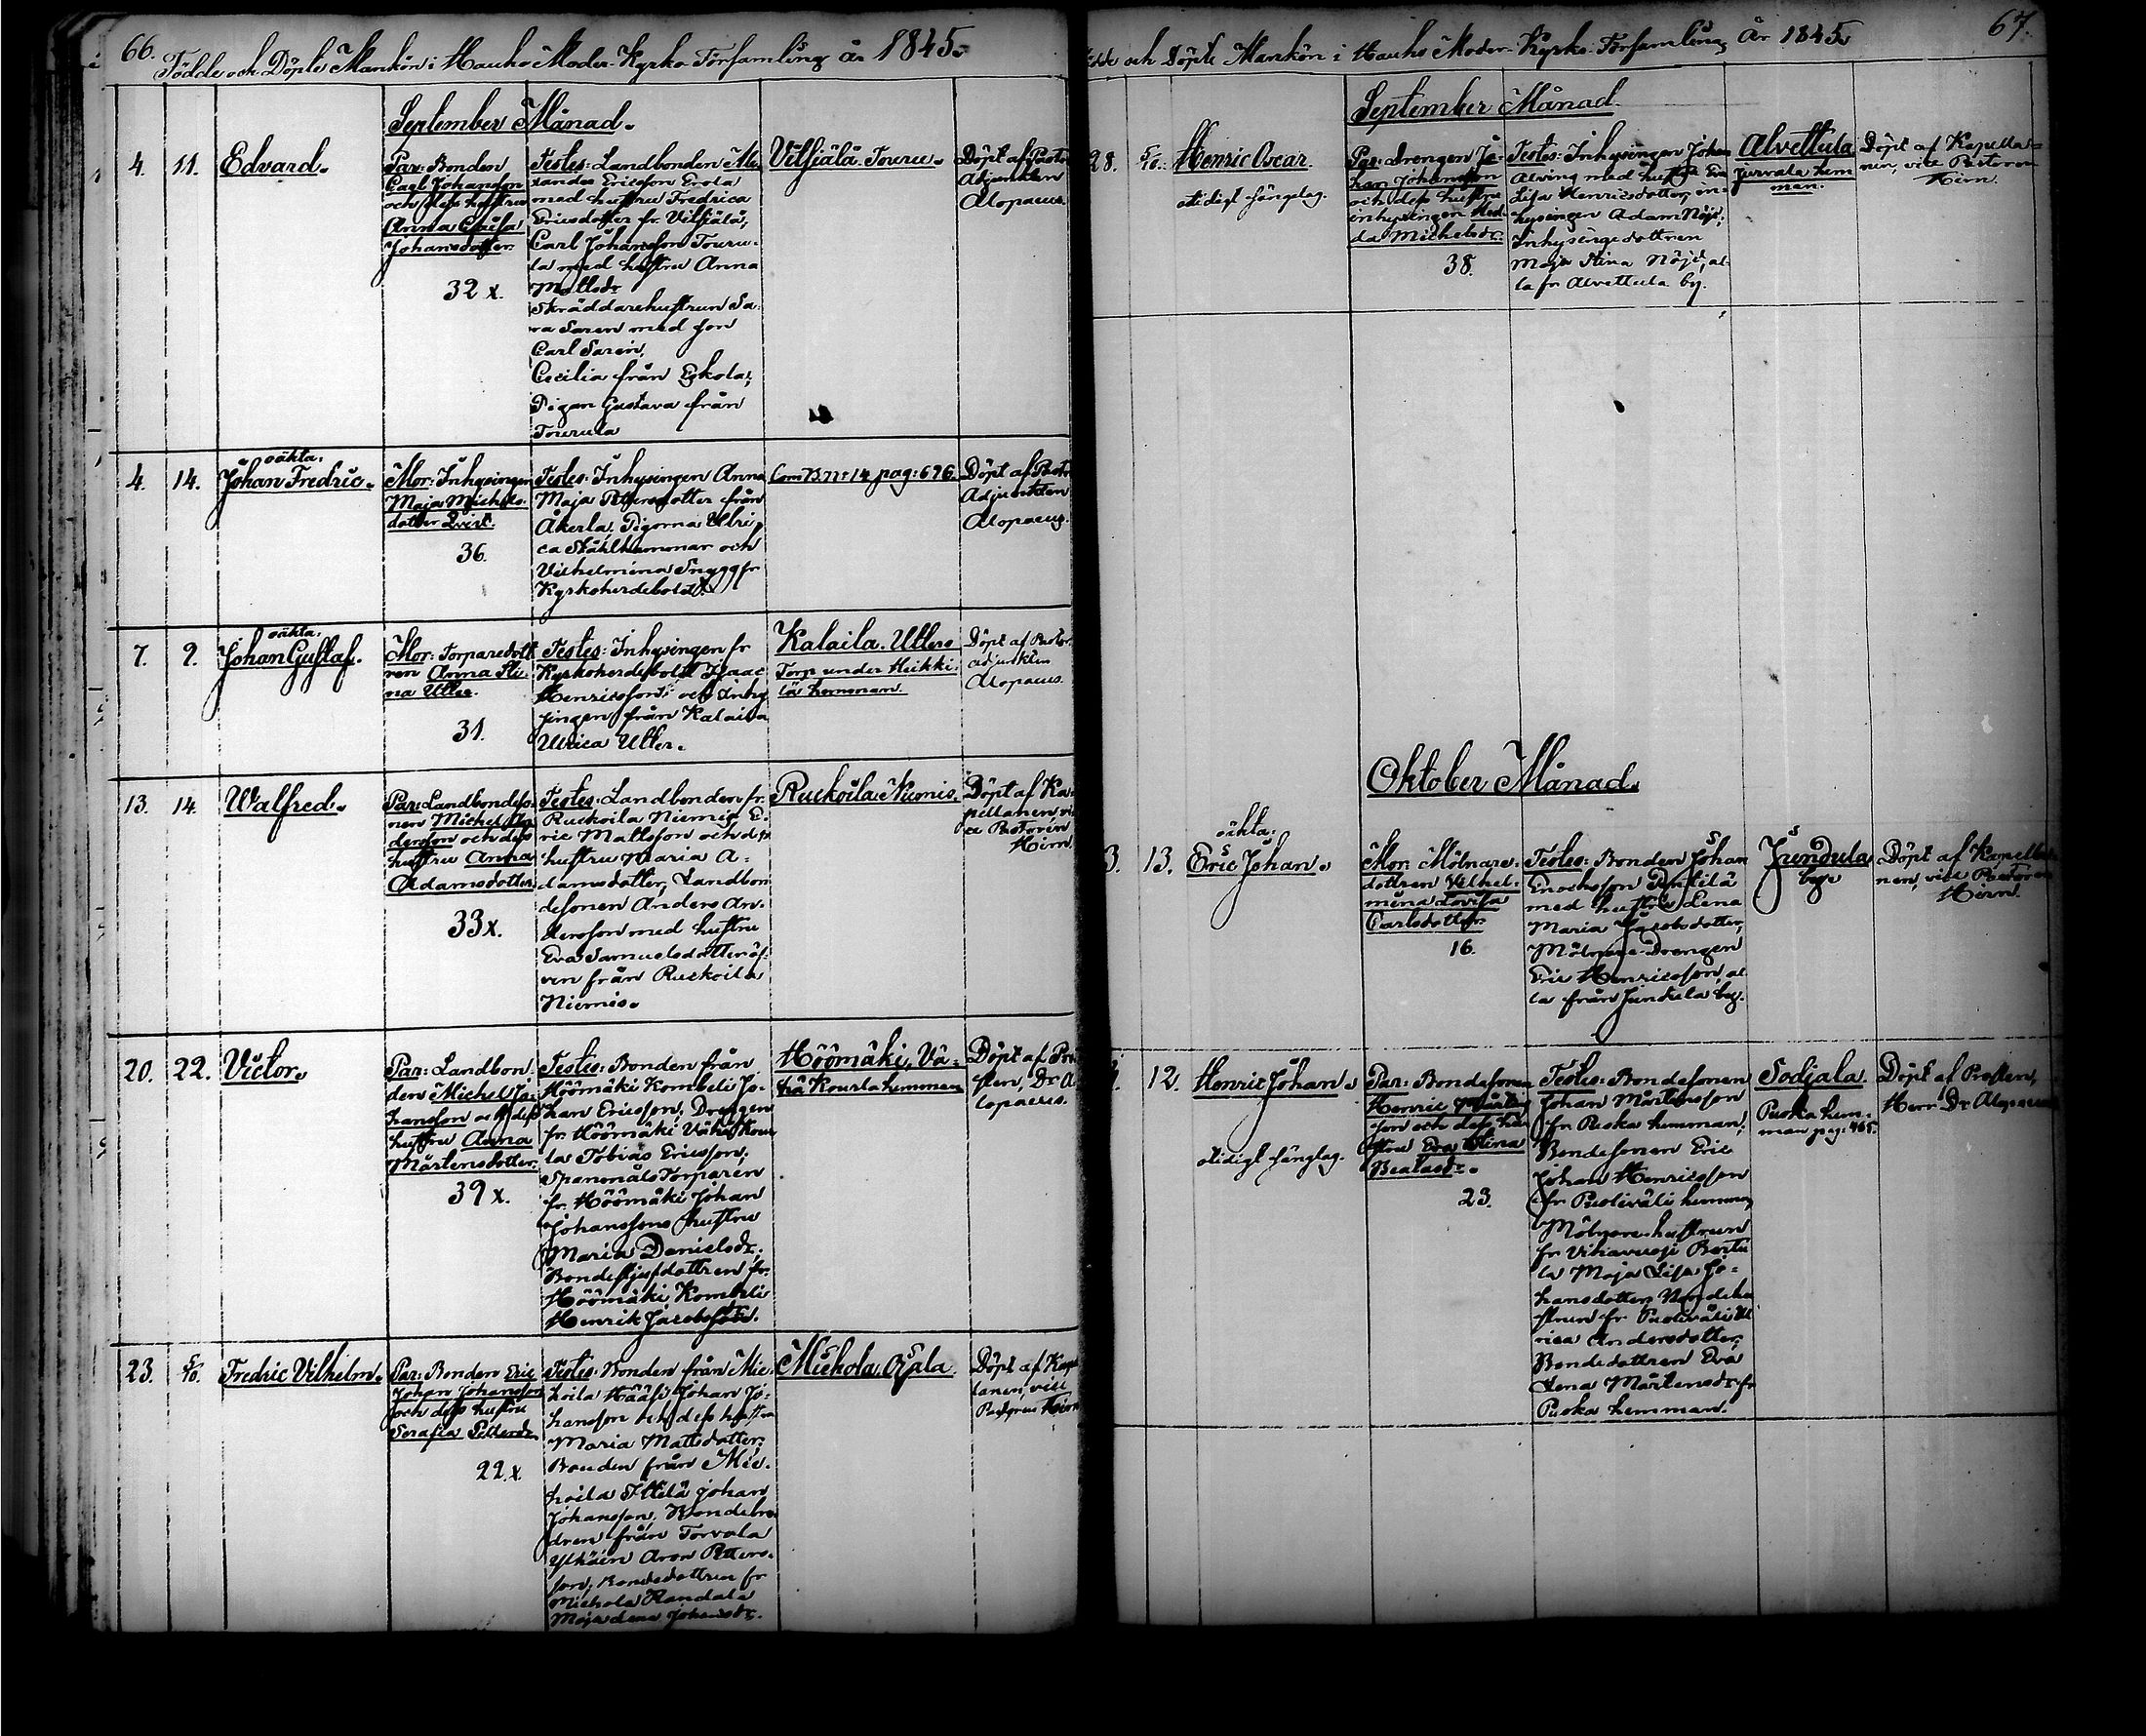 66. Födde och Döpte Mankön i Hauho Moder-Kyrko Församling år 1845.
September Månad.
4. 11. Edvard.
Par: Bonden
Carl Johansson
och dess hustru
Anna Caisa
Johansdotter.
32 x.
Testes: Landbonden
Ericsson Erola
med hustru Fredrica
Ericsdotter fr. Vitsiälä,
Carl Johansson Touru-
la med hustru Anna
Mattsdr
Skräddarehustrun Sa-
ra Saren med son
Carl Saren,
Cecilia från Eskola,
Pigan Gustava från
Tourula
Vitsiälä Touru.
Döpt af Pastor
Adjunkten
Alopaeus.
4. 14. oäkta: Johan Fredric.
Mor: Inhysingen
Maja Michels-
dotter Qvist.
36.
Testes: Inhysingen Anna
Maja från
Åkerla, Pigorna Ulri-
ca Stålhammar och
Vilhelmina Snygg fr
Kyrkoherdebolet
Com B. Nr 14 pag: 696.
Döpt af Pastor
Adjunkten
Alopaeus.
7. 9. oäkta: Johan Gustaf.
Mor: Torparedott
ren Anna Sti-
na Utter.
31.
Testes: Inhysingen fr
Kyrkoherdebolet Isaac
Henricsson och Inhy
singen från Kalaila
Ulrica Utter.
Kalaila. Utters
Torp under Heikki-
lä hemman.
Döpt af Pastor.
adjunkten
Alopaeus.
13. 14 Walfred.
Par: Landbondeso-
nen Michel An
dersson och dess
hustru Anna
Adamsdotter.
33 x.
Testes: Landbonden fr.
Ruckoila Niemis E-
ric Mattsson och dess
hustru Maria A-
damsdotter, Landbon
desonen Anders An-
dersson med hustru
Eva Samuelsdotter äf-
ven från Ruckoila
Niemis.
Ruckoila. Niemis.
Döpt af Ka-
pellanen vi-
ce Pastoren
Hirn.
20. 22. Victor.
Par: Landbon-
den Michel Jo-
hansson och dess
hustru Anna
Mårtensdotter.
39 x.
Testes: Bonden från
Höömäki Kombeli Jo-
han Ericsson; Drengen
fr. Höömäki Vähä Kour
la Tobias Ericsson;
Spannmåls Torparen
fr. Höömäki Johan
Johanssons hustru
Maria Danielsdr;
Bondestjufdottren fr.
Höömäki Kombeli
Henrik Jacobsson.
Höömäki, Vä-
hä Kourla hemman
Döpt af Pro
sten, Dr A
lopaeus.
23. 5/10. Fredric Vilhelm.
Par: Bonden Eric
Johan Johansson
och dess hustru
Serafia Pettersdr
22. x.
Testes: Bonden från Mie-
hoila Johan Jo-
hansson och dess hustru
Maria Mattsdotter;
Bonden från Mie-
hoila Ittilä Johan
Johansson,
från Torvala
Aron Petters-
son; Bondedottren fr
Miehola
Maja Lena Johansdr.
Miehola, Ojala
Döpt af Kapel
lanen, vice
Pastoren Hirn
67.
Födde och Döpte Mankön i Hauho Moder-Kyrko-Församling År 1845.
September Månad.
28. 5/10. Henric Oscar.
otidigt sängelag.
Par: Drengen Jo-
han Johansson
och dess hustru
inhysingen Hed-
da Michelsdr.
38.
Testes: Inhysingen Johan
Alving med hustru Eva
Lisa Henricsdotter, in-
hysingen Adam Nöjd,
Inhysingedottren
Maja Stina Nöjd, al-
la fr Alvettula by.
Alvettula
Jurvala hem
man.
Döpt af Kapella-
nen, vice Pastoren
Hirn.
Oktober Månad.
3. 13. oäkta: Eric Johan.
Mor: Mölnare-
dottren Vilhel-
mina Lovisa
Carlsdotter.
16.
Testes: Bonden Johan
Enochsson Penttilä
med hustru Lena
Maria Jacobsdotter,
Mölnare-Drengen
Eric Henricsson, al
la från Jundula by.
Jundula
by.
Döpt af Kapella
nen, vice Pastoren
Hirn.
12. Henric Johan.
otidigt sänglag.
Par: Bondesonen
Henric Mårtens
son och dess hu
stru Eva Stina
Beatasdr.
23.
Testes: Bondesonen
Johan Mårtensson
fr Puska hemman;
Bondesonen Eric
Johan Henricsson
fr. Puoliväli hemman,
Mölnare-hustrun
fr. Vihavuosi Bertu
la Maja Lisa Jo-
hansdotter;
strun fr Puoliväli Ul
rica Andersdotter;
Bondedottren Eva
Lena Mårtensdr fr
Puska hemman.
Sodjala.
Puska hem-
man pag: 465.
Döpt af Prosten,
Herr Dr Alopaeus